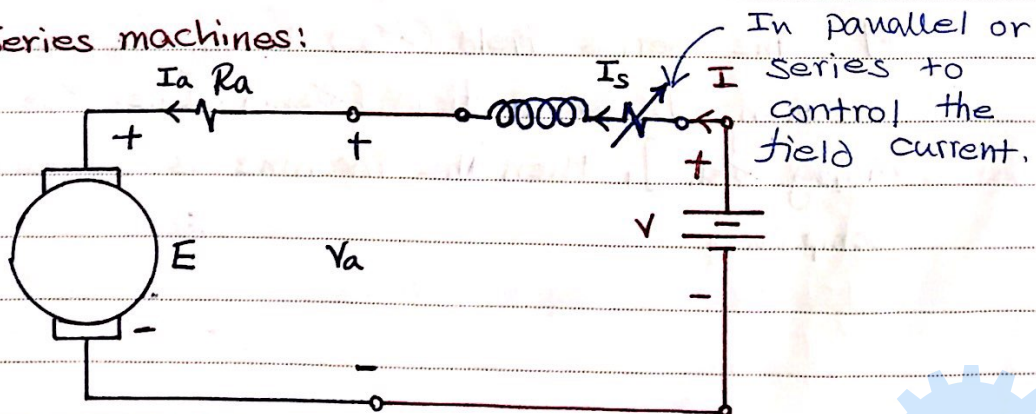 eries machines:
In parallel or
series to
control the
field current.
Ia Ra
Is
I
+
+
+
E
Va
V
-
-
-